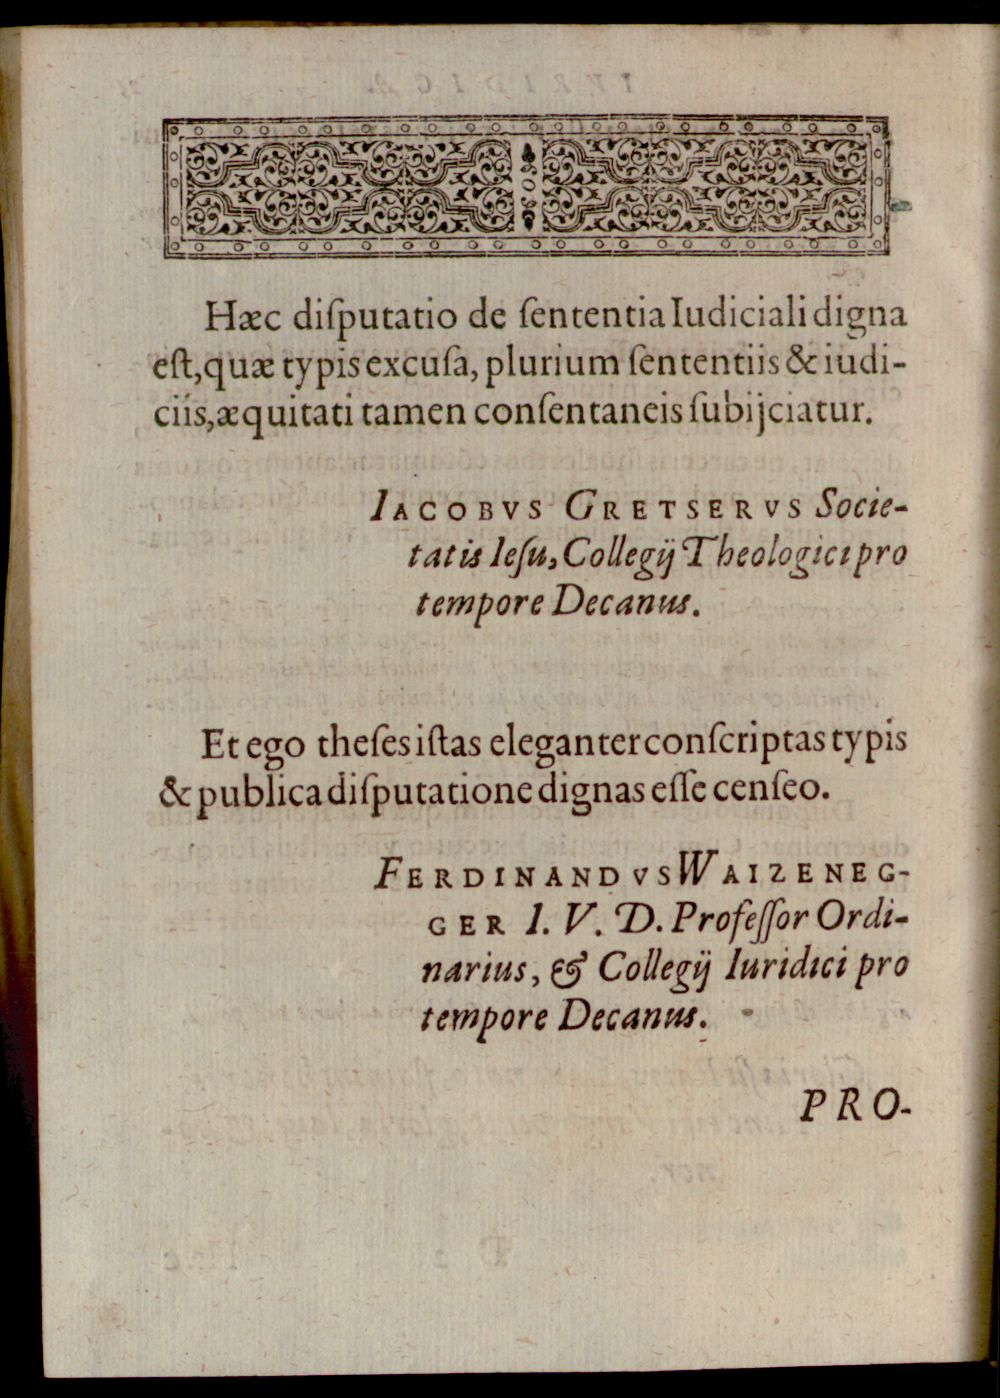 Hæc diſputatio de ſententia Iudiciali digna
eſt, quæ typis excuſa, plurium ſententiis & iudi-
ciis, æquitati tamen conſentaneis ſubijciatur.
IACOBVS GRETSERVS Socie-
tatis Ieſu, Collegij Theologici pro
tempore Decanus.
Et ego theſes iſtas eleganter conſcriptas typis
& publica diſputatione dignas eſſe cenſeo.
FERDINANDVS WAIZENEG-
GER I. V. D. Profeſſor Ordi-
narius, & Collegij Iuridici pro
tempore Decanus.
PRO-